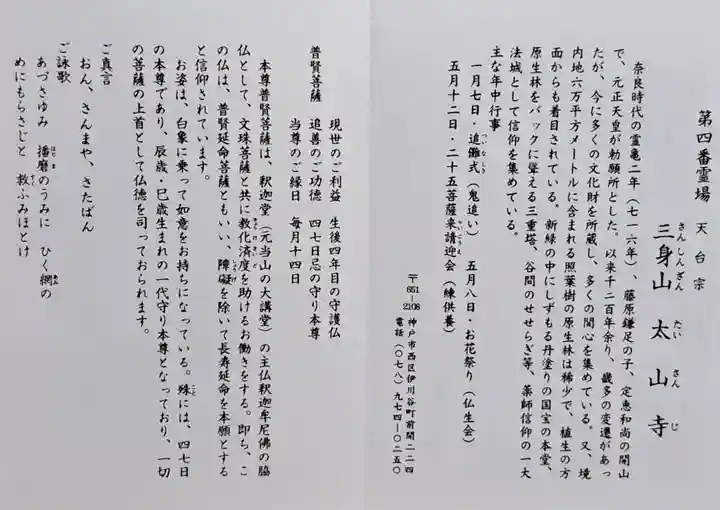 第四番霊場　天台宗
三身山　太山寺
さんしんざん　たいさんじ
奈良時代の霊亀二年（七一六年）、藤原鎌足の子、定恵和尚の開山
で、元正天皇が勅願所とした。以来千二百年余り、畿多の変遷があっ
たが、今に多くの文化財を所蔵し、多くの関心を集めている。又、境
内地六万平方メートルに含まれる照葉樹の原生林は稀少で、植生の方
面からも着目されている。新緑の中にしずもる丹塗りの国宝の本堂、
原生林をバックに聳える三重塔、谷間のせせらぎ等、薬師信仰の一大
法城として信仰を集めている。
主な年中行事
一月七日・追儺式（鬼追い）　五月八日・お花祭り（仏生会）
ついなしき
五月十二日・二十五菩薩来請迎会（練供養）
〒651-2108　神戸市西区伊川谷町前開二二四
電話（〇七八）九七四―〇二五〇
普賢菩薩
現世のご利益　生後四年目の守護仏
追善のご功徳　四七日忌の守り本尊
当尊のご縁日　毎月十四日
本尊普賢菩薩は、釈迦堂（元当山の大講堂）の主仏釈迦牟尼佛の脇
仏として、文珠菩薩と共に教化済度を助けるお働きをする。即ち、こ
の仏は、普賢延命菩薩ともいい、障礙を除いて長寿延命を本願とする
と信仰されています。
お姿は、白象に乗って如意をお持ちになっている。殊には、四七日
の本尊であり、辰歳・巳歳生まれの一代守り本尊となっており、一切
の菩薩の上首として仏徳を司っておられます。
ご真言
おん、さんまや、さたばん
ご詠歌
あづさゆみ　播磨のうみに　ひく網の
めにもらさじと　救ふみほとけ